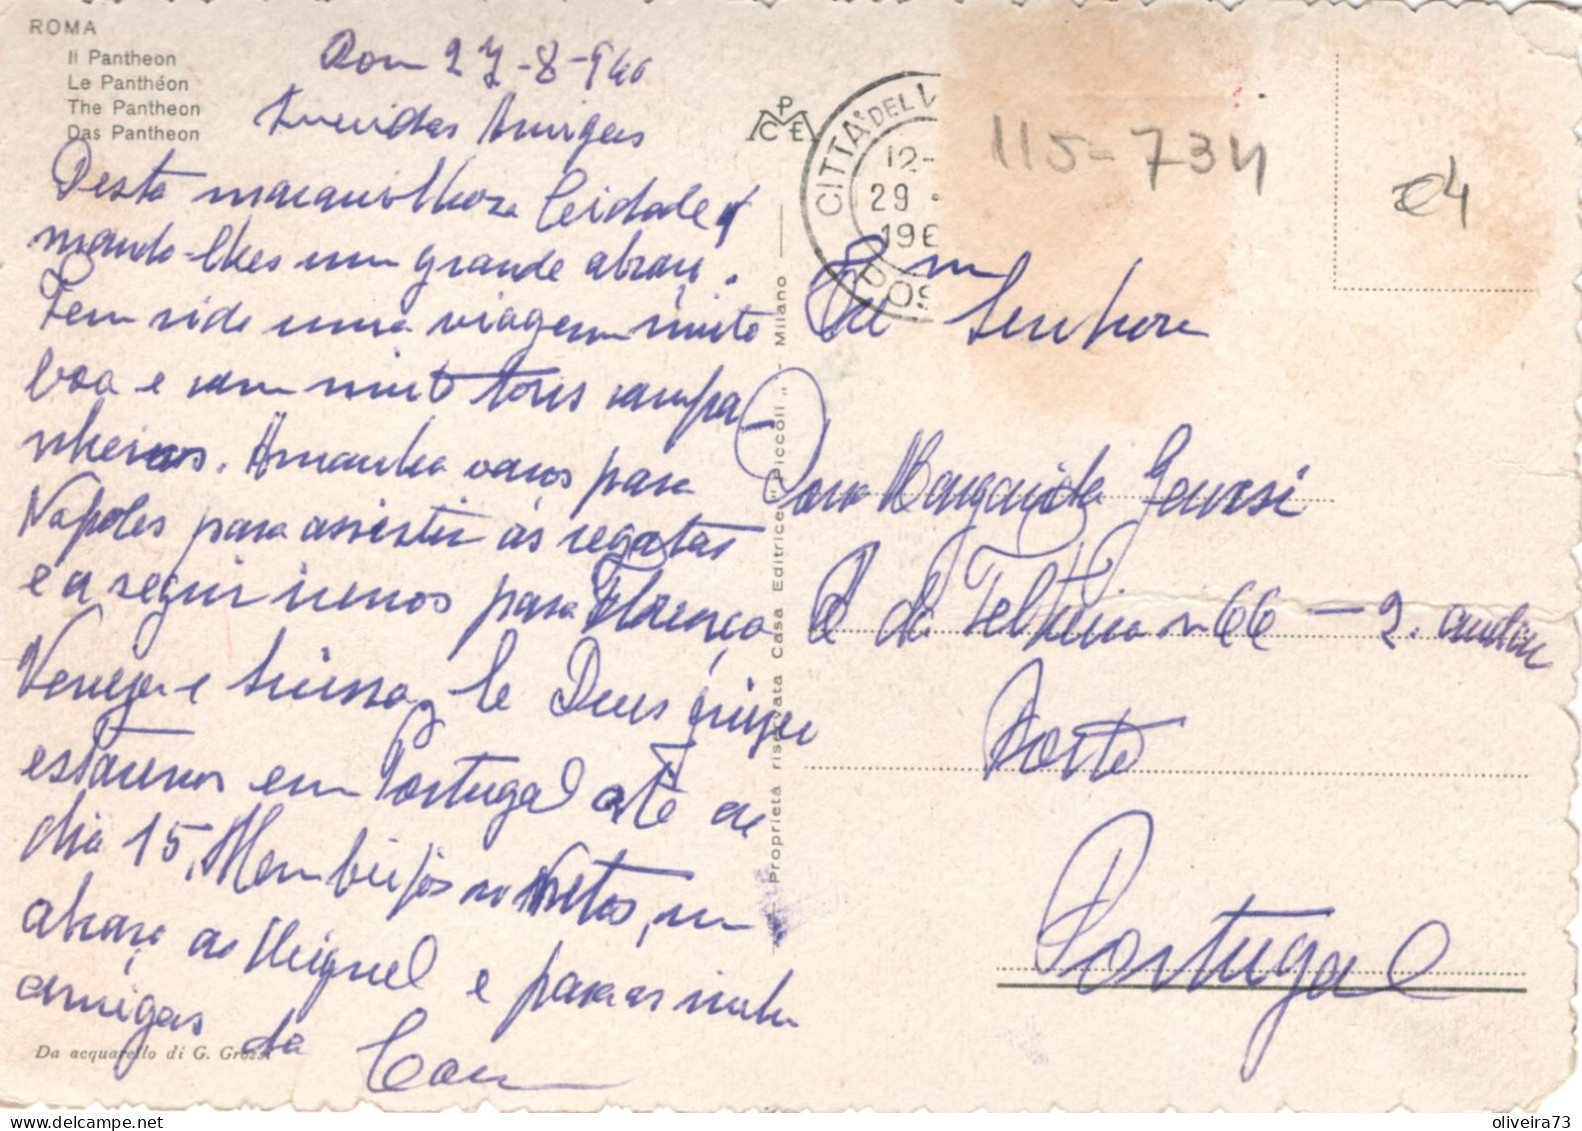 ROMA
Il Pantheon
Le Panthéon
The Pantheon
Das Pantheon
27-8-960
Queridas Amigas
Desta maravilhosa Cidade
mando-lhes um grande abraço.
Tem sido uma viagem muito
boa e com muito bons compa-
nheiros. Amanha vamos para
Napoles para assistir ás regatas
e a seguir iremos para Florença
Veneza e Suissa, Se Deus quizer
estaremos em Portugal até ao
dia 15. Mem beijos nos Netos, um
abraço ao Miguel e para as minhas
amigas da
Da acquarello di G. Grossi
PCE
CITTÀ DEL V
12-
29
196
POS
115-734
e4
Proprietà riservata Casa Editrice "Piccoli" - Milano
Ex ma Senhora
Dona Margarida
R. da n 66 - 2. andar
Porto
Portugal
oliveira73